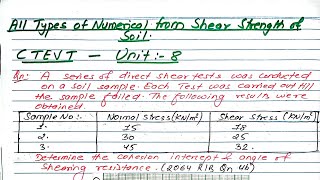 All Types of Numerical from Shear Strength of
Soil.
CTEVT - Unit:- 8
Qn: A series of direct shear tests was conducted
on a soil sample. Each Test was carried out till
the sample failed. The following results were
obtained.
Sample No:- Normal Stress (KN/m²) Shear Stress (KN/m²)
1. 15 18
2. 30 25
3. 45 32
Determine the cohesion intercept & angle of
shearing resistance. (2064 RIB, Qn 4b)